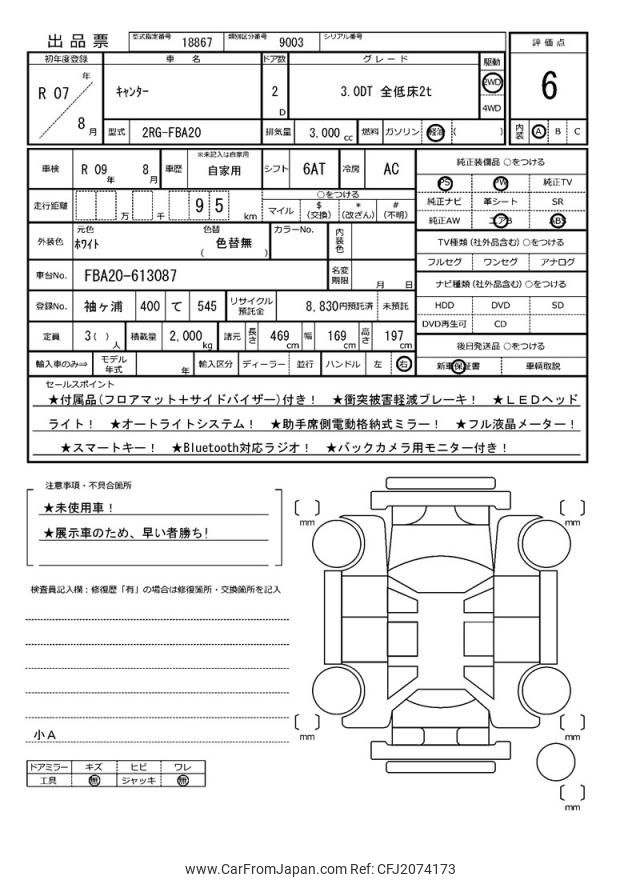 出品票 型式指定番号 18867 類別区分番号 9003 シリアル番号
評価点
6
内装 A B C
初年度登録 車名 ドア数 グレード 駆動
R 07 年 8 月 キャンター 2 D 3.0DT 全低床2t 2WD 4WD
型式 2RG-FBA20 排気量 3,000 cc 燃料 ガソリン 軽油 ( )
車検 R 09 年 8 月 車歴 ※未記入は自家用 自家用 シフト 6AT 冷房 AC
走行距離 万 千 95 km ○をつける
マイル $ (交換) * (改ざん) # (不明)
外装色 元色 ホワイト 色替 ( 色替無 ) カラーNo. 内装色
車台No. FBA20-613087 名変期限 月 日
登録No. 袖ヶ浦 400 て 545 リサイクル預託金 8,830円預託済 未預託
定員 3( ) 人 積載量 2,000 kg 諸元 長さ 469 cm 幅 169 cm 高さ 197 cm
輸入車のみ⇒ モデル年式 年 輸入区分 ディーラー 並行 ハンドル 左 右
純正装備品 ○をつける
PS PW 純正TV
純正ナビ 革シート SR
純正AW エアB ABS
TV種類 (社外品含む) ○をつける
フルセグ ワンセグ アナログ
ナビ種類 (社外品含む) ○をつける
HDD DVD SD
DVD再生可 CD
後日発送品 ○をつける
新車保証書 車輌取説
セールスポイント
★付属品(フロアマット＋サイドバイザー)付き！ ★衝突被害軽減ブレーキ！ ★ＬＥＤヘッド
ライト！ ★オートライトシステム！ ★助手席側電動格納式ミラー！ ★フル液晶メーター！
★スマートキー！ ★Bluetooth対応ラジオ！ ★バックカメラ用モニター付き！
注意事項・不具合箇所
★未使用車！
★展示車のため、早い者勝ち!
検査員記入欄：修復歴「有」の場合は修復箇所・交換箇所を記入
小A
ドアミラー キズ ヒビ ワレ
工具 無 ジャッキ 無
[ ] mm [ ] mm
[ ] mm [ ] mm
[ ] mm
www.CarFromJapan.com Ref: CFJ2074173